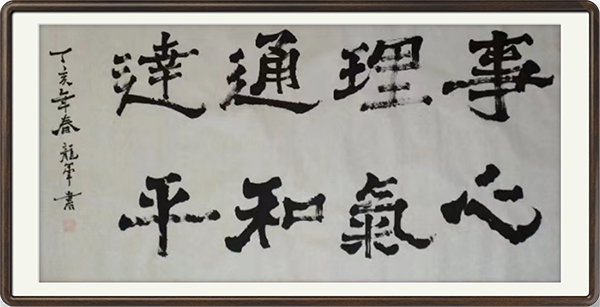 事理通達
心氣和平
丁亥年春龍書